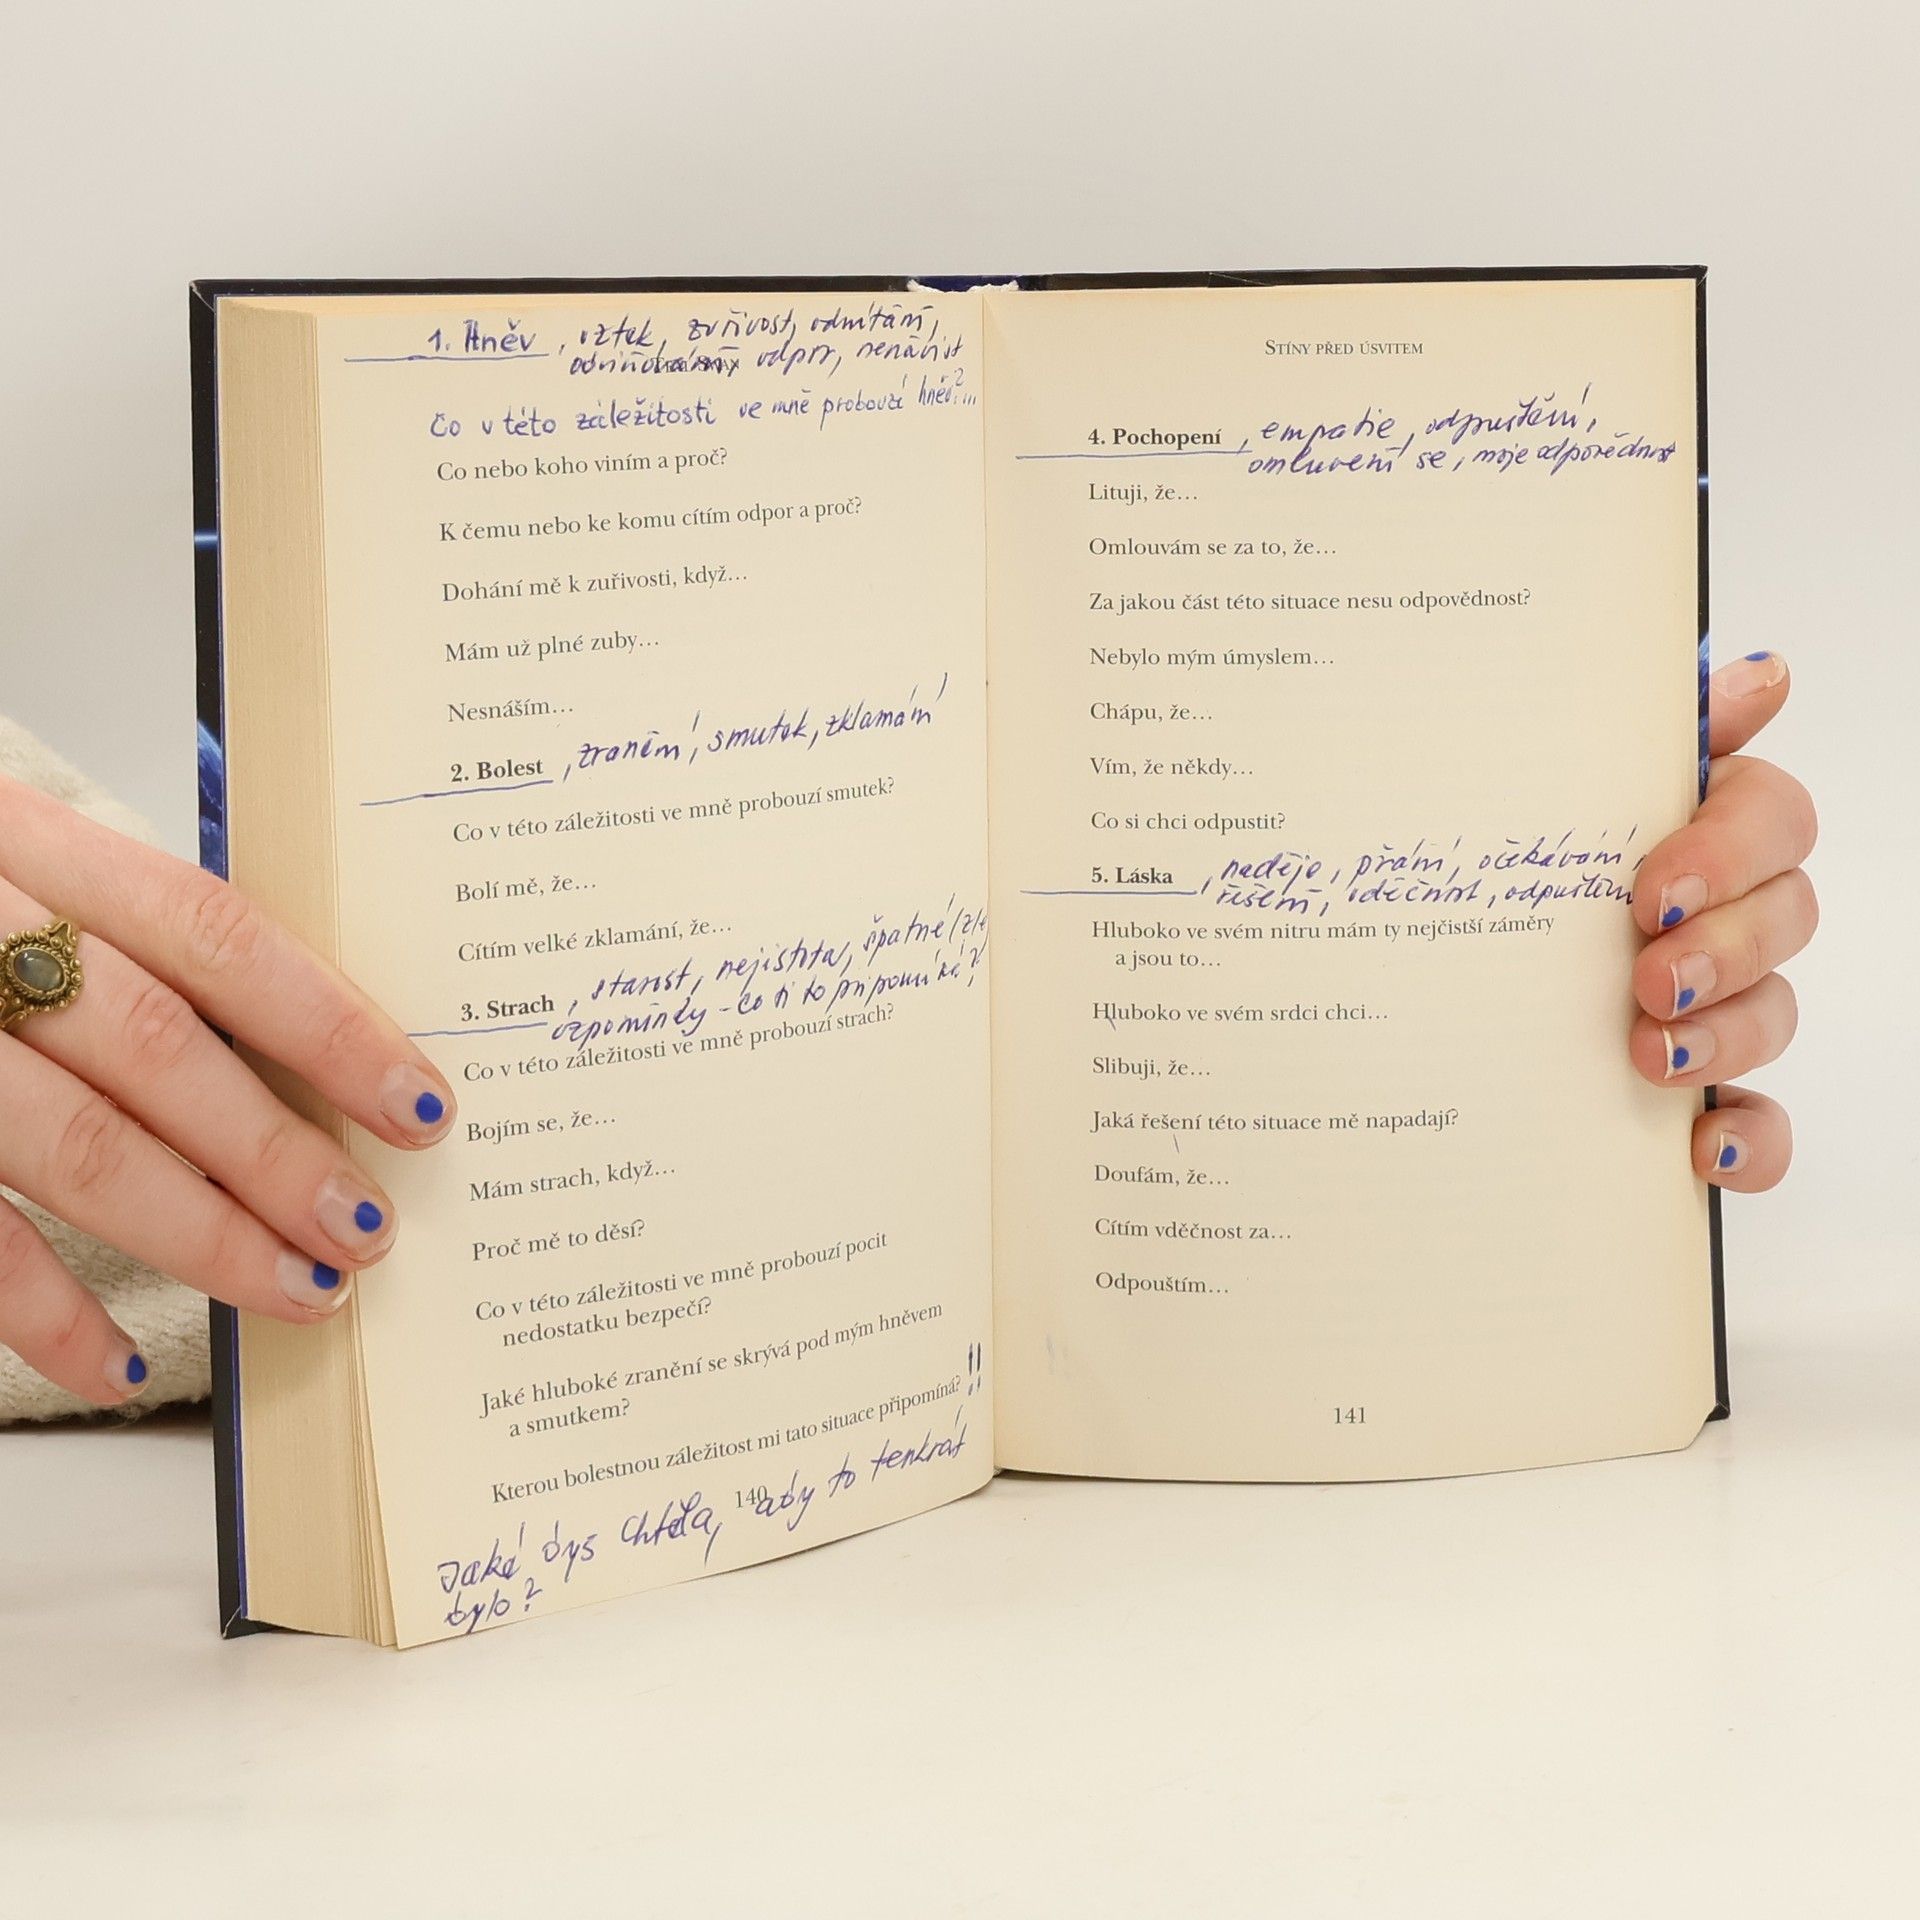 1. Hněv, vztek, zuřivost, odmítání,
obviňování, odpor, nenávist
Co v této záležitosti ve mně probouzí hněv?...
Co nebo koho viním a proč?
K čemu nebo ke komu cítím odpor a proč?
Dohání mě k zuřivosti, když…
Mám už plné zuby…
Nesnáším…
2. Bolest, zranění, smutek, zklamání
Co v této záležitosti ve mně probouzí smutek?
Bolí mě, že…
Cítím velké zklamání, že…
3. Strach, starost, nejistota, špatné/zlé
vzpomínky - co ti to připomíná?
Co v této záležitosti ve mně probouzí strach?
Bojím se, že…
Mám strach, když…
Proč mě to děsí?
Co v této záležitosti ve mně probouzí pocit
nedostatku bezpečí?
Jaké hluboké zranění se skrývá pod mým hněvem
a smutkem?
Kterou bolestnou záležitost mi tato situace připomíná? !!
140
Jaké bys chtěla, aby to tenkrát
bylo?
Stíny před úsvitem
4. Pochopení, empatie, odpuštění,
omluvení se, moje odpovědnost
Lituji, že…
Omlouvám se za to, že…
Za jakou část této situace nesu odpovědnost?
Nebylo mým úmyslem…
Chápu, že…
Vím, že někdy…
Co si chci odpustit?
5. Láska, naděje, přání, očekávání,
řešení, vděčnost, odpuštění
Hluboko ve svém nitru mám ty nejčistší záměry
a jsou to…
Hluboko ve svém srdci chci…
Slibuji, že…
Jaká řešení této situace mě napadají?
Doufám, že…
Cítím vděčnost za…
Odpouštím…
141